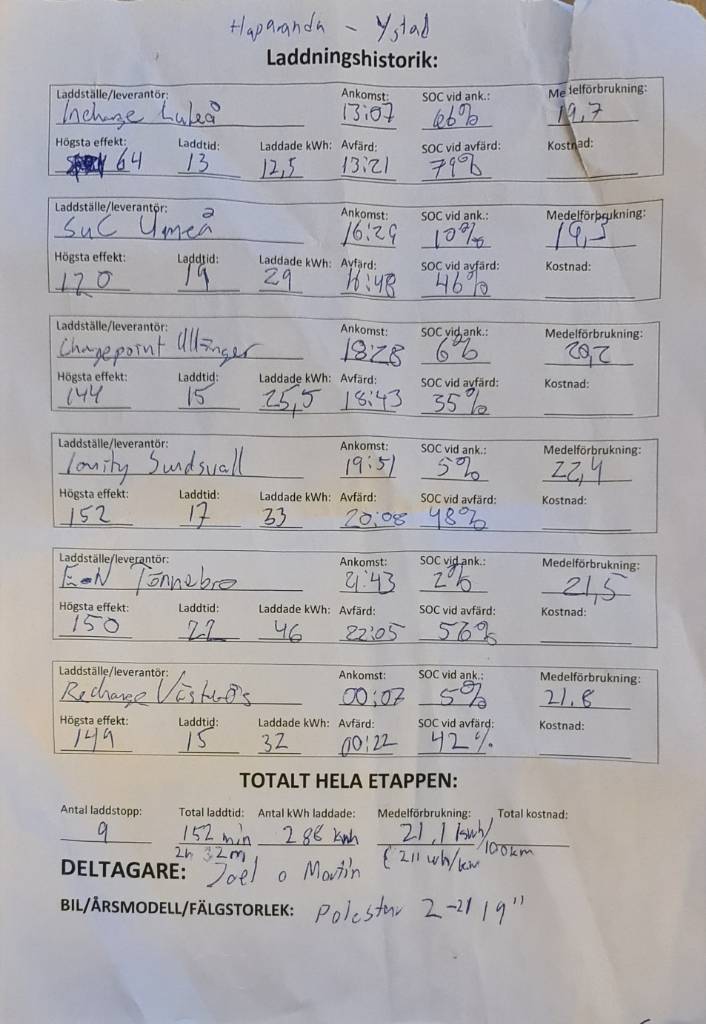 Haparanda - Ystad
Laddningshistorik:
Laddställe/leverantör: Ankomst: SOC vid ank.: Medelförbrukning:
Incharge Luleå 13:07 66% 19,7
Högsta effekt: Laddtid: Laddade kWh: Avfärd: SOC vid avfärd: Kostnad:
64 13 12,5 13:21 79%
Laddställe/leverantör: Ankomst: SOC vid ank.: Medelförbrukning:
SuC Umeå 16:29 10% 19,5
Högsta effekt: Laddtid: Laddade kWh: Avfärd: SOC vid avfärd: Kostnad:
120 19 29 16:48 46%
Laddställe/leverantör: Ankomst: SOC vid ank.: Medelförbrukning:
Chargepoint Ullånger 18:28 6% 20,2
Högsta effekt: Laddtid: Laddade kWh: Avfärd: SOC vid avfärd: Kostnad:
144 15 25,5 18:43 35%
Laddställe/leverantör: Ankomst: SOC vid ank.: Medelförbrukning:
Ionity Sundsvall 19:51 5% 22,4
Högsta effekt: Laddtid: Laddade kWh: Avfärd: SOC vid avfärd: Kostnad:
152 17 33 20:08 48%
Laddställe/leverantör: Ankomst: SOC vid ank.: Medelförbrukning:
E.ON Tönnebro 21:43 2% 21,5
Högsta effekt: Laddtid: Laddade kWh: Avfärd: SOC vid avfärd: Kostnad:
150 22 46 22:05 56%
Laddställe/leverantör: Ankomst: SOC vid ank.: Medelförbrukning:
Recharge Västerås 00:07 5% 21.8
Högsta effekt: Laddtid: Laddade kWh: Avfärd: SOC vid avfärd: Kostnad:
149 15 32 00:22 42%
TOTALT HELA ETAPPEN:
Antal laddstopp: Total laddtid: Antal kWh laddade: Medelförbrukning: Total kostnad:
9 152 min 286 kwh 21,1 kwh/100km
2h 32m 211 wh/km
DELTAGARE: Joel o Martin
BIL/ÅRSMODELL/FÄLGSTORLEK: Polestar 2 -21 19"